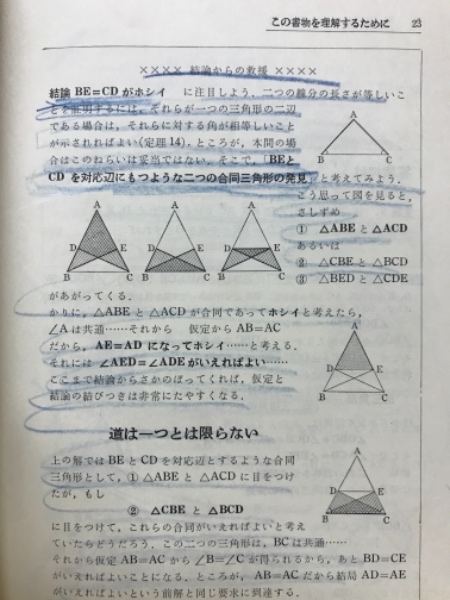 この書物を理解するために 23
×××× 結論からの救援 ××××
結論 BE=CD がホシイ に注目しよう．二つの線分の長さが等しいこ
とを証明するには，それらが一つの三角形の二辺
である場合は，それらに対する角が相等しいこと
が示されればよい(定理14)．ところが，本問の場
合はこのねらいは妥当ではない．そこで，「BEと
CD を対応辺にもつような二つの合同三角形の発見」と考えてみよう．
こう思って図を見ると，
さしずめ
① △ABE と △ACD
あるいは
② △CBE と △BCD
③ △BED と △CDE
A
B C
A
D E
B C
A
D E
B C
A
D E
B C
があがってくる．
かりに，△ABE と △ACD が合同であってホシイと考えたら，
∠A は共通……それから 仮定から AB=AC
だから，AE=AD になってホシイ……と考える．
それには ∠AED=∠ADE がいえればよい……
ここまで結論からさかのぼってくれば，仮定と
結論の結びつきは非常にたやすくなる．
A
D E
B C
道は一つとは限らない
上の解では BE と CD を対応辺とするような合同
三角形として，① △ABE と △ACD に目をつけ
たが，もし
② △CBE と △BCD
に目をつけて，これらの合同がいえればよいと考え
ていたらどうだろう．この二つの三角形は，BC は共通……
それから仮定 AB=AC から ∠B=∠C が得られるから，あと BD=CE
がいえればよいことになる．ところが，AB=AC だから結局 AD=AE
がいえればよいという前解と同じ要求に到達する．
A
D E
B C